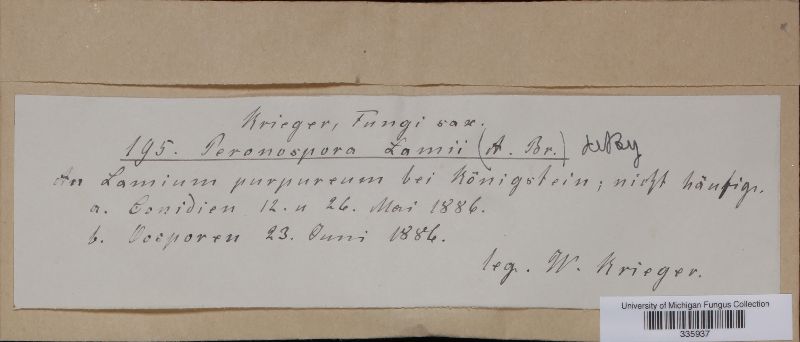 Krieger, Fungi sax.
195. Peronospora Lamii (A. Br.) deBy
An Lamium purpureum bei Königstein; nicht häufig.
a. Conidien 12. u 26. Mai 1886.
b. Oosporen 23. Juni 1886.
leg. W. Krieger.
University of Michigan Fungus Collection
335937